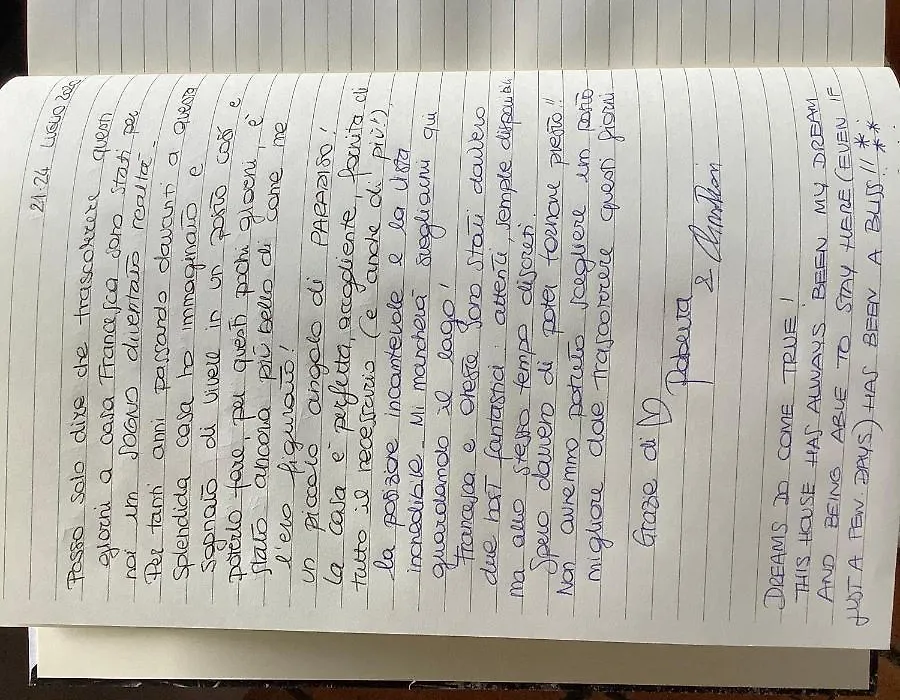 21-24 LUGLIO 2020
Posso solo dire che trascorrere questi
giorni a casa Francesca sono stati per
noi un sogno diventato realtà.
Per tanti anni passando davanti a questa
splendida casa ho immaginato e
sognato di vivere in un posto così e
poterlo fare, per questi pochi giorni, è
stato ancora più bello di come me
l'ero figurato!
un piccolo angolo di PARADISO!
La casa è perfetta, accogliente, fornita di
tutto il necessario (e anche di più!),
la posizione incantevole e la vista
incredibile. Mi mancherà svegliarmi qui
guardando il lago!
Francesca e Oreste sono stati davvero
due host fantastici: attenti, sempre disponibili
ma allo stesso tempo discreti.
Spero davvero di poter tornare presto!!
Non avremmo potuto scegliere un posto
migliore dove trascorrere questi giorni
Grazie di ♡
Roberta
& Christian
DREAMS DO COME TRUE!
THIS HOUSE HAS ALWAYS BEEN MY DREAM
AND BEING ABLE TO STAY HERE (EVEN IF
JUST A FEW DAYS) HAS BEEN A BLISS!! * * *